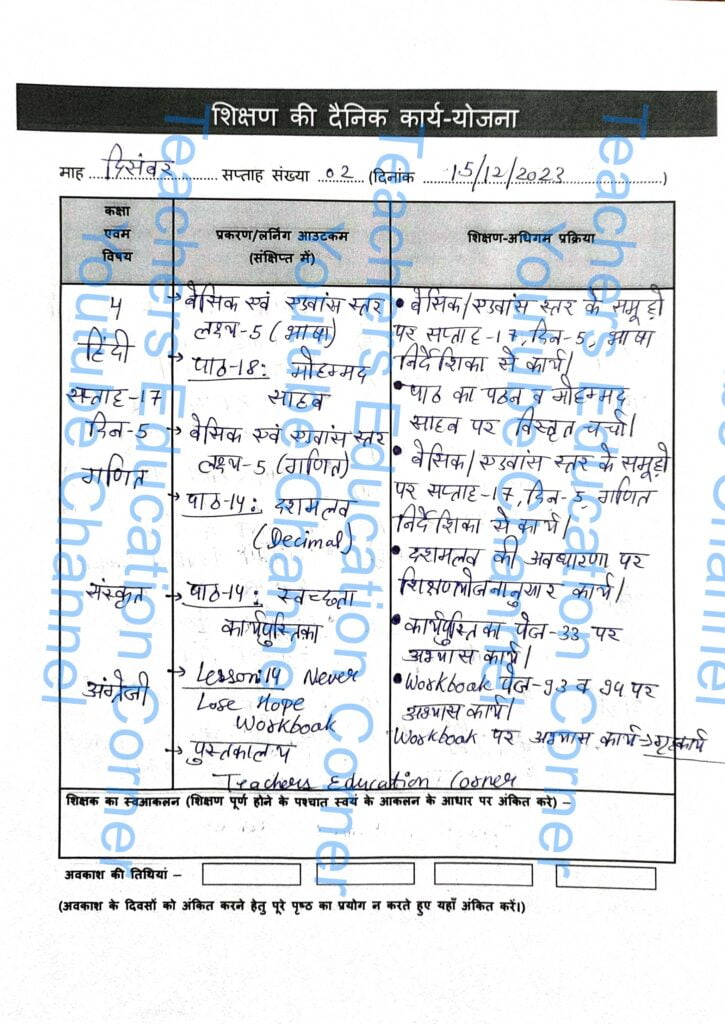 शिक्षण की दैनिक कार्य-योजना
माह दिसंबर सप्ताह संख्या 02 (दिनांक 15/12/2023)
कक्षा
एवम
विषय
प्रकरण/लर्निंग आउटकम
(संक्षिप्त में)
शिक्षण-अधिगम प्रक्रिया
4
हिंदी
सप्ताह-17
दिन-5
गणित
संस्कृत
अंग्रेजी
→ बेसिक एवं एडवांस स्तर
लक्ष्य-5 (भाषा)
→ पाठ-18: मोहम्मद
साहब
→ बेसिक एवं एडवांस स्तर
लक्ष्य-5 (गणित)
→ पाठ-14: दशमलव
(Decimal)
→ पाठ-14: स्वच्छता
कार्यपुस्तिका
→ Lesson:14 Never
Lose Hope
Workbook
→ पुस्तकालय
Teachers Education Corner
• बेसिक/एडवांस स्तर के समूहों
पर सप्ताह-17, दिन-5, भाषा
निर्देशिका से कार्य।
• पाठ का पठन व मोहम्मद
साहब पर विस्तृत चर्चा।
• बेसिक/एडवांस स्तर के समूहों
पर सप्ताह-17, दिन-5, गणित
निर्देशिका से कार्य।
• दशमलव की अवधारणा पर
शिक्षणयोजनानुसार कार्य।
• कार्यपुस्तिका पेज-33 पर
अभ्यास कार्य।
• Workbook पेज-93 व 94 पर
अभ्यास कार्य।
Workbook पर अभ्यास कार्य→गृहकार्य
शिक्षक का स्वआकलन (शिक्षण पूर्ण होने के पश्चात स्वयं के आकलन के आधार पर अंकित करे) –
अवकाश की तिथियां –
(अवकाश के दिवसों को अंकित करने हेतु पूरे पृष्ठ का प्रयोग न करते हुए यहाँ अंकित करें।)
Teachers Education Corner
Youtube Channel
Teachers Education Corner
Youtube Channel
Teachers Education Corner
Youtube Channel